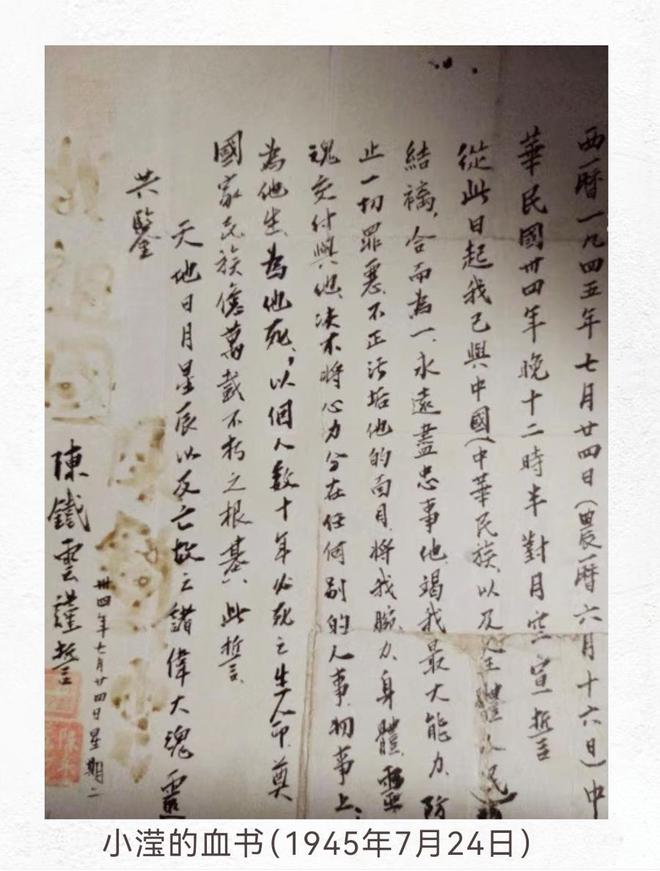 西曆一九四五年七月廿四日(農曆六月十六日)中
華民國卅四年晚十二時半對月空宣誓
從此日起我已與中國(中華民族以及全體人民)
結褵,合而為一、永遠盡忠事他竭我最大能力、防
止一切罪惡不正沾垢他的面目、將我腦力、身體靈
魂交付與他、決不將心力分在任何別的人事、物事上;
為他生、為他死;以個人數十年必死之生命、奠
國家民族億萬載不朽之根基。此誓
天地日月星辰以及亡故之諸偉大魂靈
共鑒
卅四年七月廿四日星期二
陳鐵雲謹誓
祖國
小滢的血书(1945年7月24日)